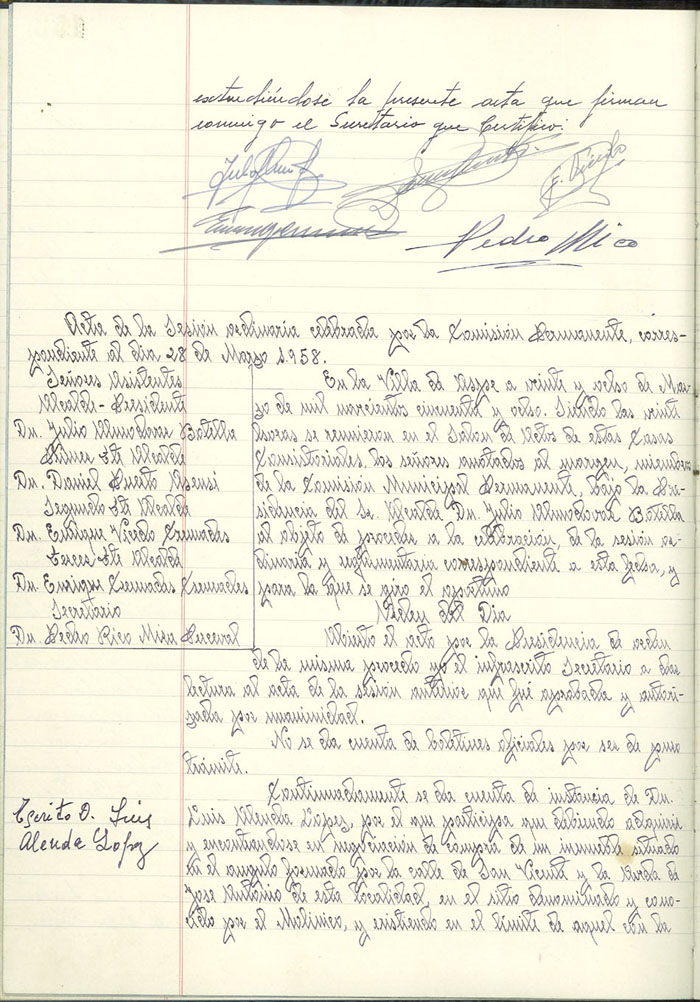 extendiéndose la presente acta que firman
conmigo el Secretario que Certifico:
Pedro Mico
Acta de la Sesión ordinaria celebrada por la Comisión Permanente, corres-
pondiente al dia 28 de Marzo 1.958.
Señores Asistentes
Alcalde-Presidente
Dn. Julio Almodovar Botella
Primer Tte Alcalde
Dn. Daniel Puerto Asensi
Segundo Tte Alcalde
Dn. Enrique Vicedo Cremades
Tercer Tte Alcalde
Dn. Enrique Cremades Cremades
Secretario
Dn. Pedro Rico Mira Perceval
En la Villa de Aspe a veinte y ocho de Mar-
zo de mil novecientos cincuenta y ocho. Siendo las veinte
horas se reunieron en el Salon de Actos de estas Casas
Consistoriales, los señores anotados al margen, miembros
de la Comisión Municipal Permanente, bajo la Pre-
sidencia del Sr. Alcalde Dn. Julio Almodovar Botella
al objeto de proceder a la celebración, de la sesión or-
dinaria y reglamentaria correspondiente a esta fecha, y
para la que se giro el oportuno
Orden del Dia
Abierto el acto por la Presidencia de orden
de la misma procedo yo el infrascrito Secretario a dar
lectura al acta de la sesión anterior que fué aprobada y autori-
zada por unanimidad.
No se da cuenta de boletines oficiales por ser de puro
trámite.
Escrito D. Luis
Alenda Lopez
Continuadamente se da cuenta de instancia de Dn.
Luis Alenda Lopez, por el que participa que habiendo adquirir
y encontrandose en negociación de compra de un inmueble situado
en el angulo formado por la calle de San Vicente y la Avda de
Jose Antonio de esta localidad, en el sitio denominado y cono-
cido por el Molinico, y existiendo en el límite de aquel con la